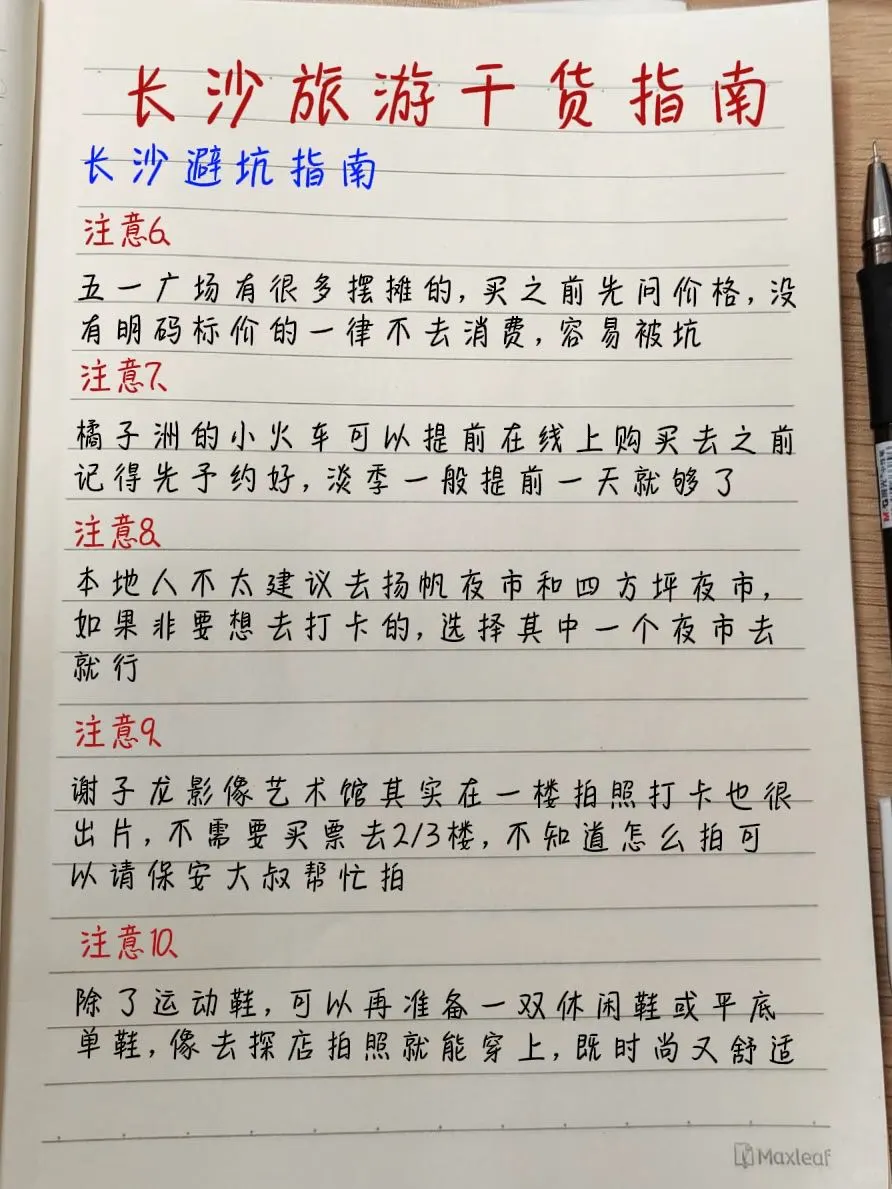 长沙旅游干货指南
长沙避坑指南
注意6、
五一广场有很多摆摊的,买之前先问价格,没
有明码标价的一律不去消费,容易被坑
注意7、
橘子洲的小火车可以提前在线上购买去之前
记得先予约好,淡季一般提前一天就够了
注意8、
本地人不太建议去扬帆夜市和四方坪夜市,
如果非要想去打卡的,选择其中一个夜市去
就行
注意9、
谢子龙影像艺术馆其实在一楼拍照打卡也很
出片,不需要买票去2/3楼,不知道怎么拍可
以请保安大叔帮忙拍
注意10、
除了运动鞋,可以再准备一双休闲鞋或平底
单鞋,像去探店拍照就能穿上,既时尚又舒适
Maxleaf